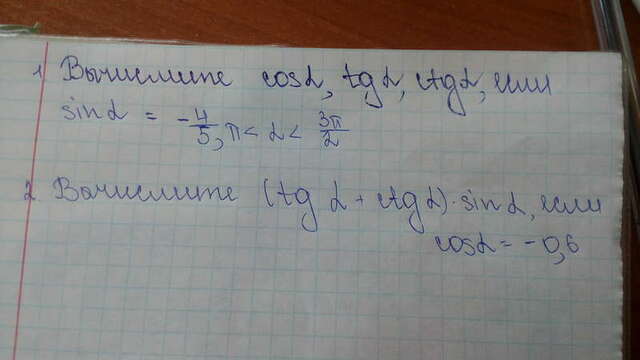 1 Вычислите cosα, tgα, ctgα, если
sinα = -4/5, π < α < 3π/2
2. Вычислите (tg α + ctgα)·sinα, если
cosα = -0,6